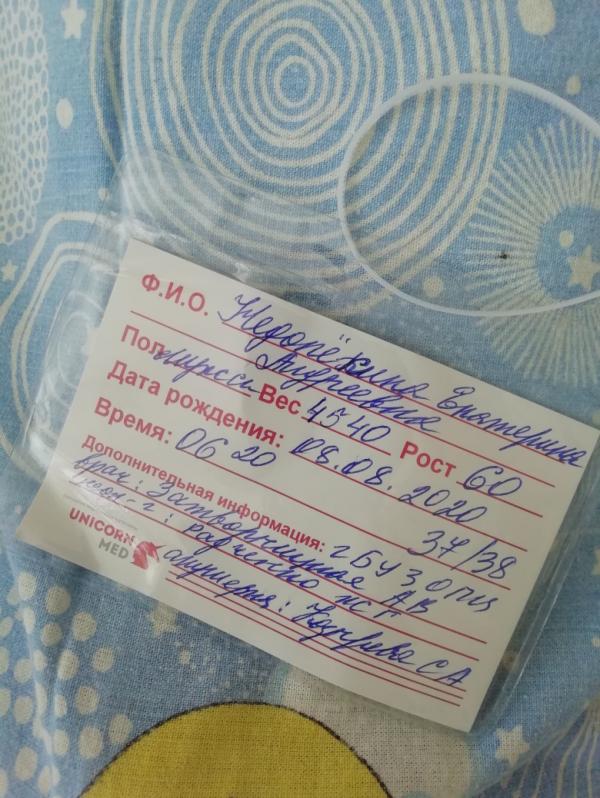 Ф.И.О. Недопёкина Екатерина
Андреевна
Пол мужской Вес 4540 Рост 60
Дата рождения: 08.08.2020
Время: 0620 37/38
Дополнительная информация: ГБУЗ ОПЦ
врач: Затворницкая АВ
неон-г:
акушерка: СА
UNICORN
MED